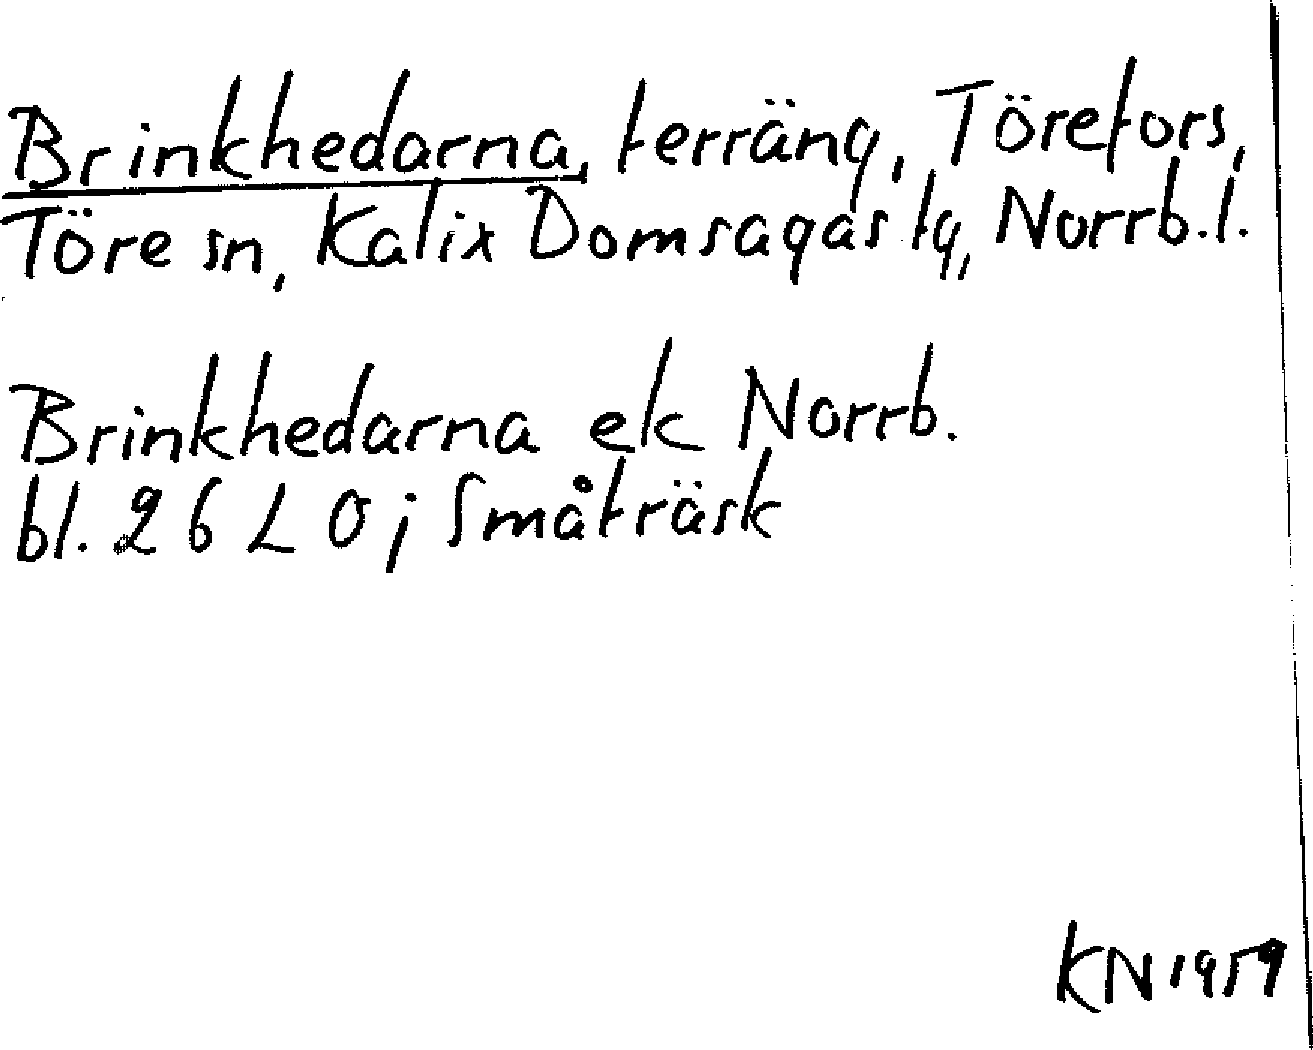 Brinkhedarna, terräng, Törefors,
Töre sn, Kalix Domsagas tg, Norrb.l.
Brinkhedarna ek Norrb.
bl. 26 L 0 j Småträsk
KN 1959